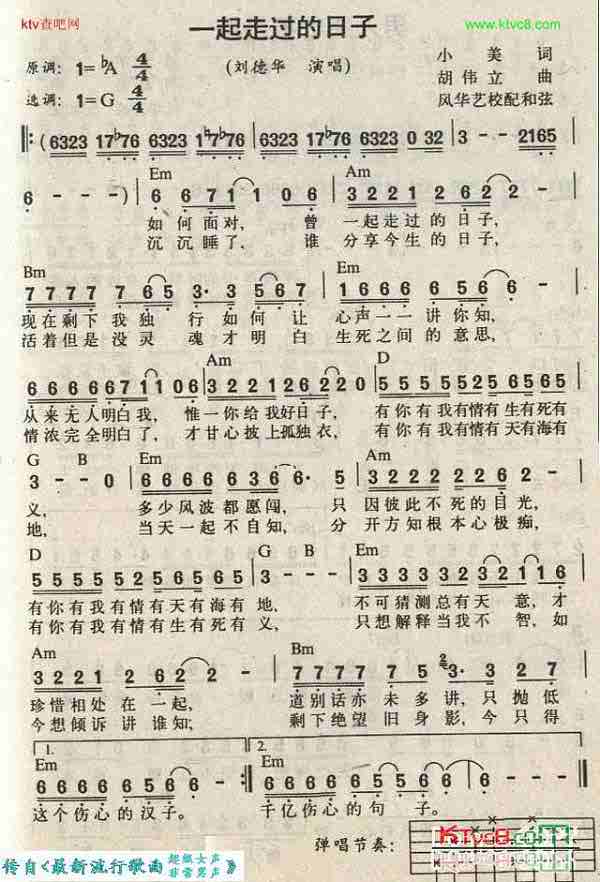 ktv查吧网
一起走过的日子
www.ktvc8.com
原调：1=♭A 4/4
(刘德华 演唱)
小美 词
胡伟立 曲
选调：1=G 4/4
风华艺校配和弦
(6323 17♭76 6323 17♭76 6323 17♭76 6323 0 32 3 - - 2165
Em Am
6 - - -) 6 6 7 1 1 0 6 3 2 2 1 2 6 2 -
如何面对，曾一起走过的日子，
沉沉睡了，谁分享今生的日子，
Bm Em
7 7 7 7 7 6 5 3· 3 5 6 7 6 6 6 6 5 6 -
现在剩下我独行如何让心声一一讲你知，
活着但是没灵魂才明白生死之间的意思，
Am D
6 6 6 6 6 6 7 1 1 0 6 3 2 2 1 2 6 2 2 0 5 5 5 5 5 5 5 2 5 6 5
从来无人明白我，惟一你给我好日子，有你有我有情有生有死有
情浓完全明白了，才甘心披上孤独衣，有你有我有情有天有海有
G B Em Am
3 - - 0 6 6 6 6 6 3 6 6· 5 3 2 2 2 2 2 2 -
义，多少风波都愿闯，只因彼此不死的目光，
地，当天一起不自知，分开方知根本心极痴，
D G B Em
有你有我有情有天有海有地，不可猜测总有天意，才
有你有我有情有生有死有义，只想解释当我不智，如
Am Bm
珍惜相处在一起，道别话亦未多讲，只抛低
今想倾诉讲谁知；剩下绝望旧身影，今只得
1. 2.
Em Em
这个伤心的汉子。千亿伤心的句子。
弹唱节奏：
KTVc8.com
传自《最新流行歌曲 超级女声 非常男声》